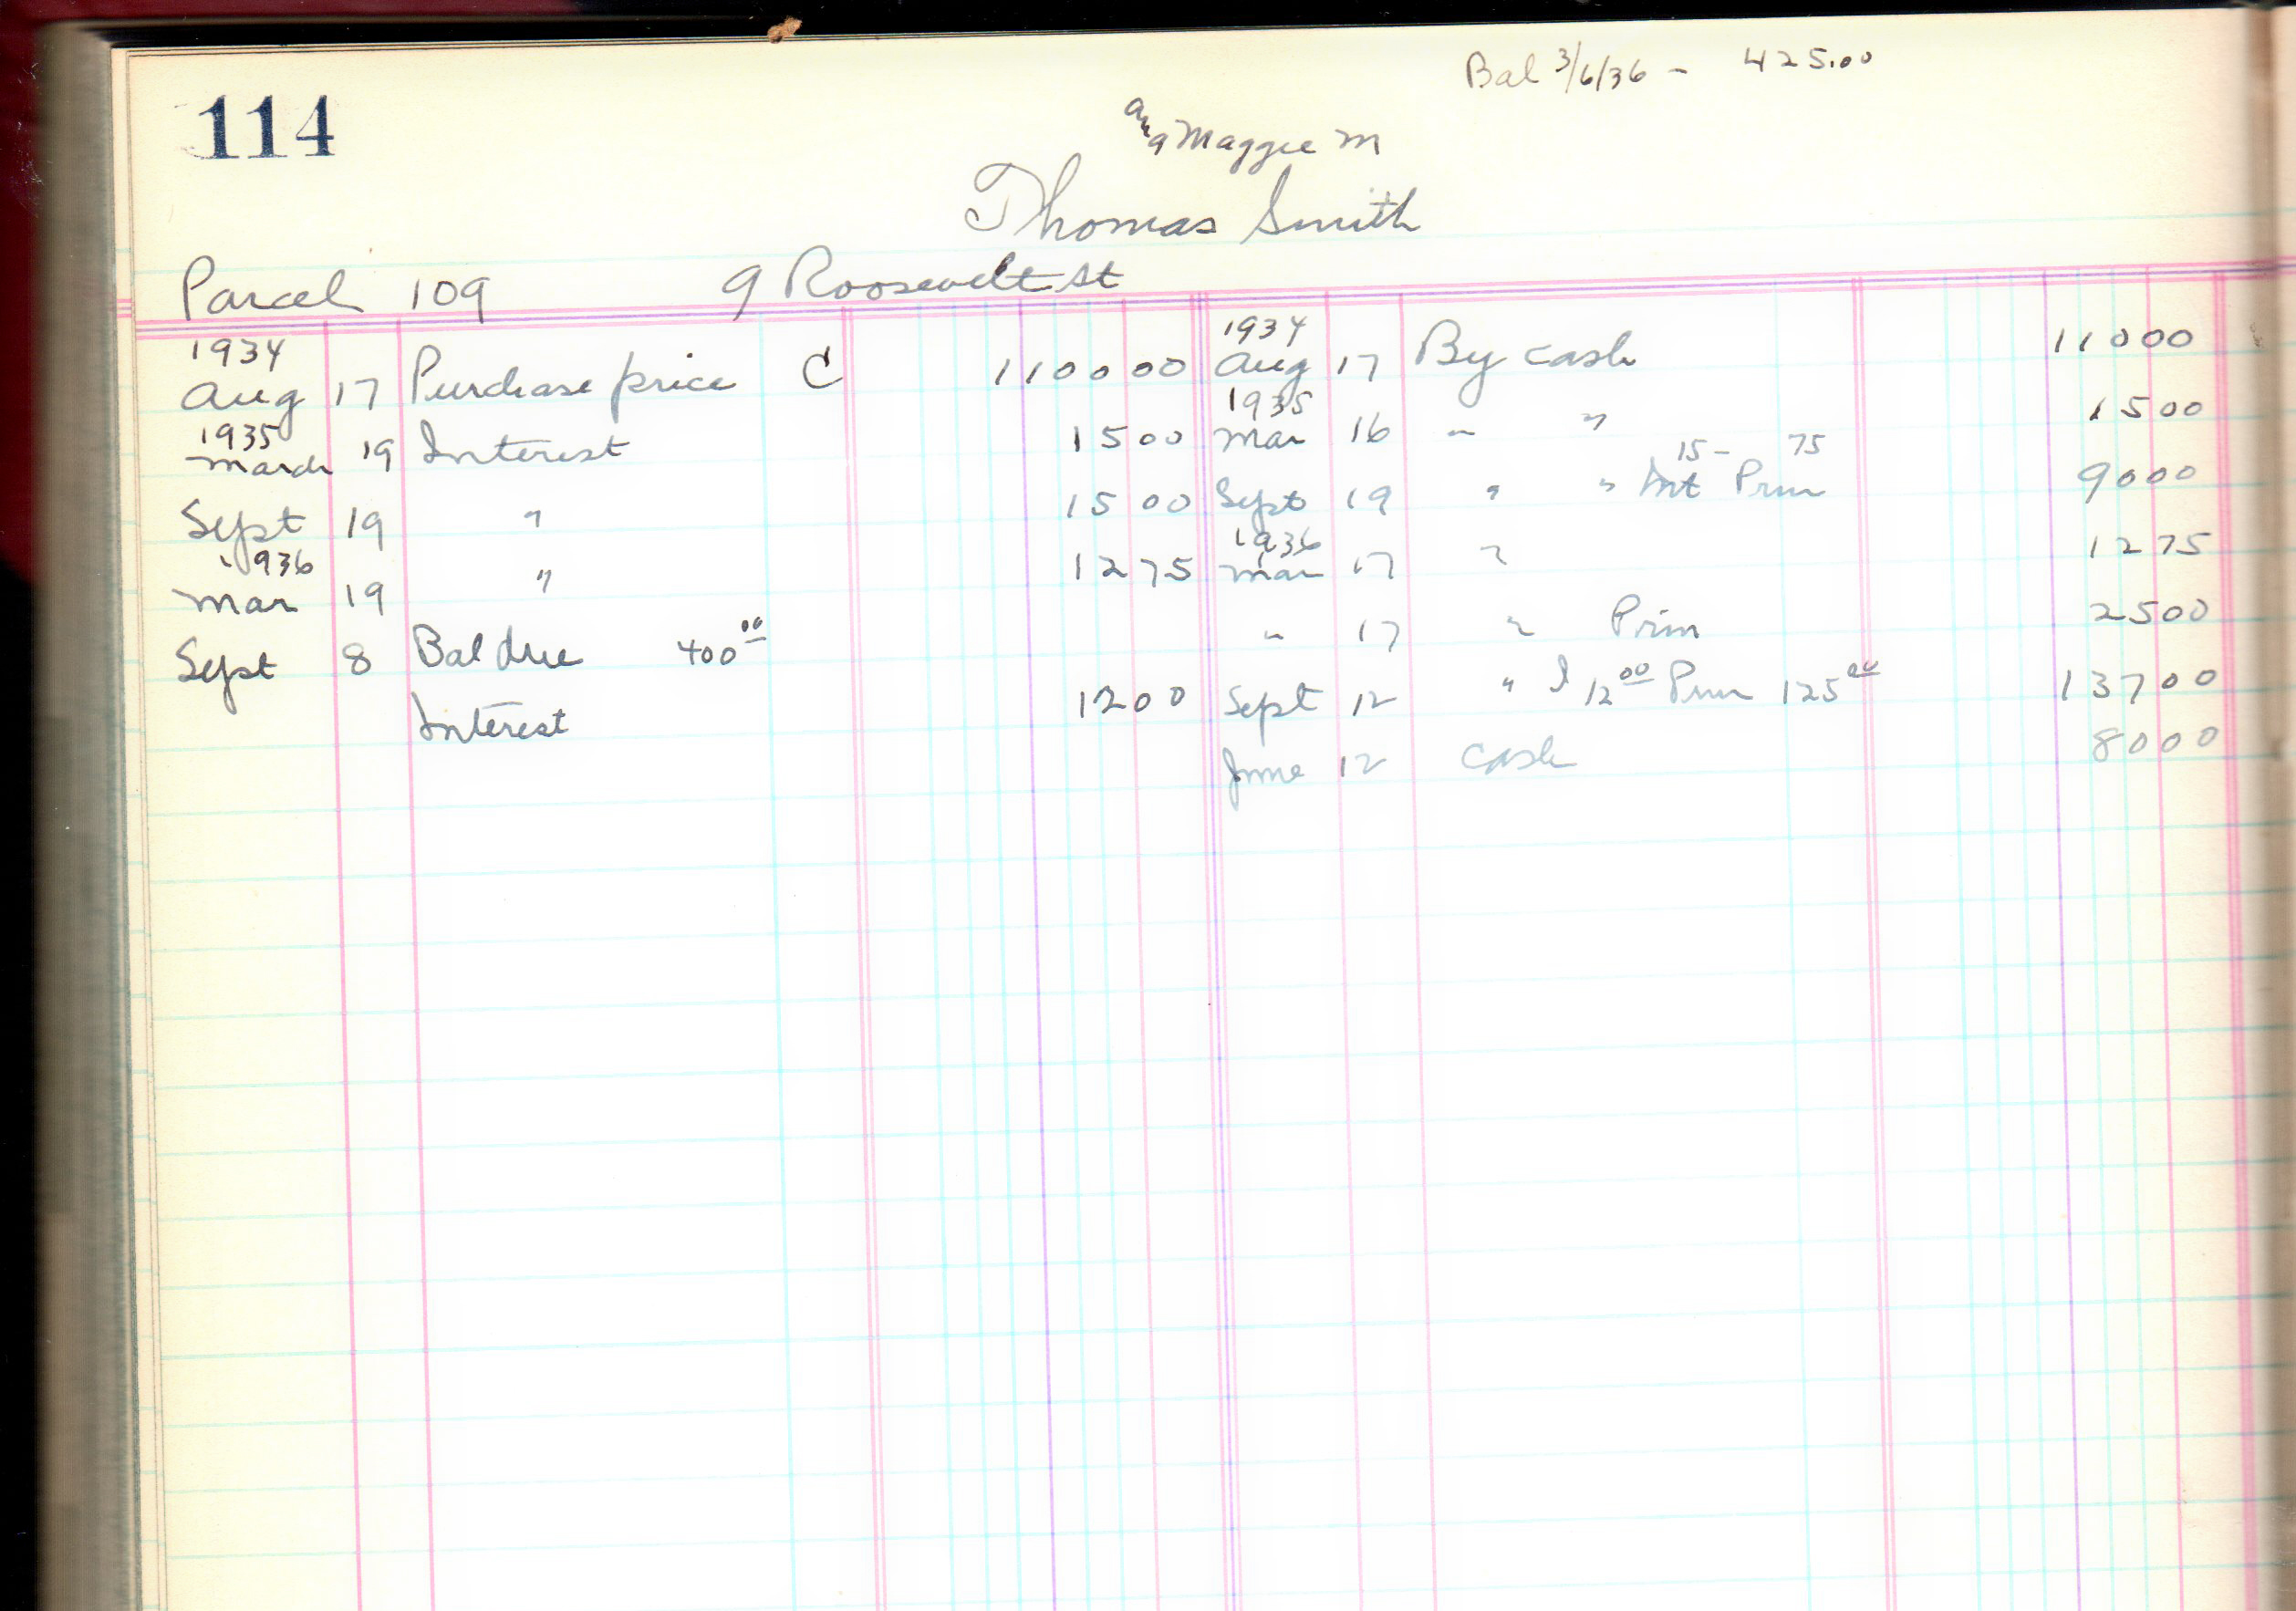 Bal 3/6/36 - 425.00
114
and Maggie M
Thomas Smith
Parcel 109 9 Roosevelt St
1934 1934
Aug 17 Purchase price C 1100 00 Aug 17 By cash 110 00
1935 1935
March 19 Interest 15 00 Mar 16 " " 15 00
15 - 75
Sept 19 " 15 00 Sept 19 " " Int Prin 90 00
1936 1936
Mar 19 " 12 75 Mar 17 " 12 75
" 17 " Prin 25 00
Sept 8 Bal due 400 00
Interest 12 00 Sept 12 " I 12 00 Prin 125 00 137 00
June 12 cash 80 00